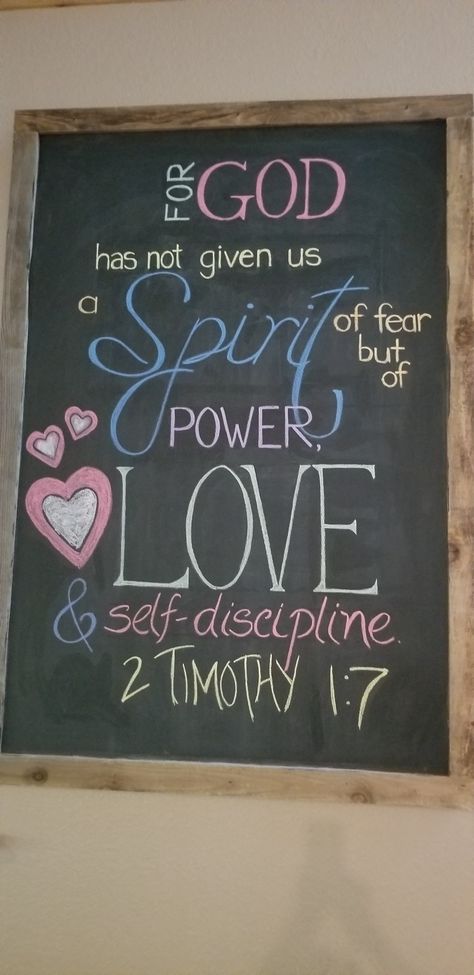 FOR GOD
has not given us
a Spirit of fear
but
of
POWER,
LOVE
& self-discipline.
2 TIMOTHY 1:7